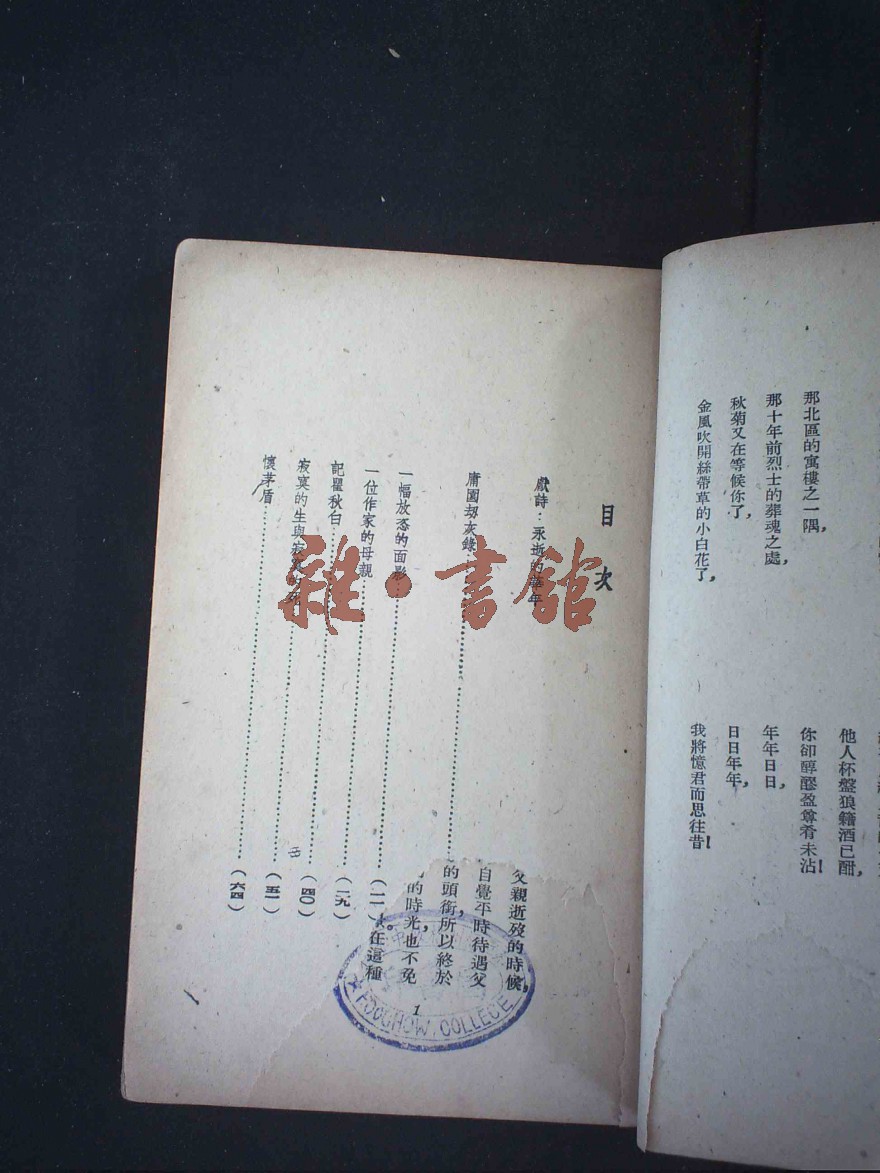 那北區的寓樓之一隅，
那十年前烈士的葬魂之處，
秋菊又在等候你了，
金風吹開絲帶草的小白花了，
他人杯盤狼籍酒已酣，
你卻醇醪盈尊肴未沾！
年年日日，
日日年年，
我將憶君而思往昔！
目次
獻詩：永逝的華年
庸園劫灰錄
一幅放恣的面影
一位作家的母親（二一）
記瞿秋白（二九）
寂寞的生與寂寞的死（四〇）
懷茅盾（五一）
（六四）
父親逝歿的時候，
自覺平時待遇父
的頭銜所以終於
的時光，也不免
在這種
1
FOOCHOW COLLEGE
雜·書館